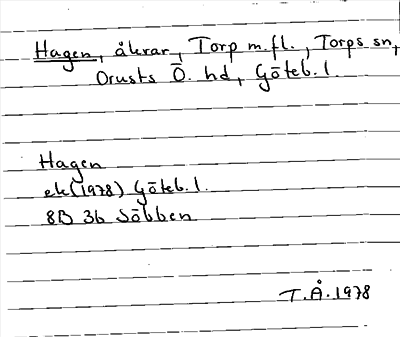 Hagen, åkrar, Torp m.fl., Torps sn,
Orusts Ö. hd, Göteb. l.
Hagen
ek(1978) Göteb. l.
8B 3b Söbben
T.Å. 1978